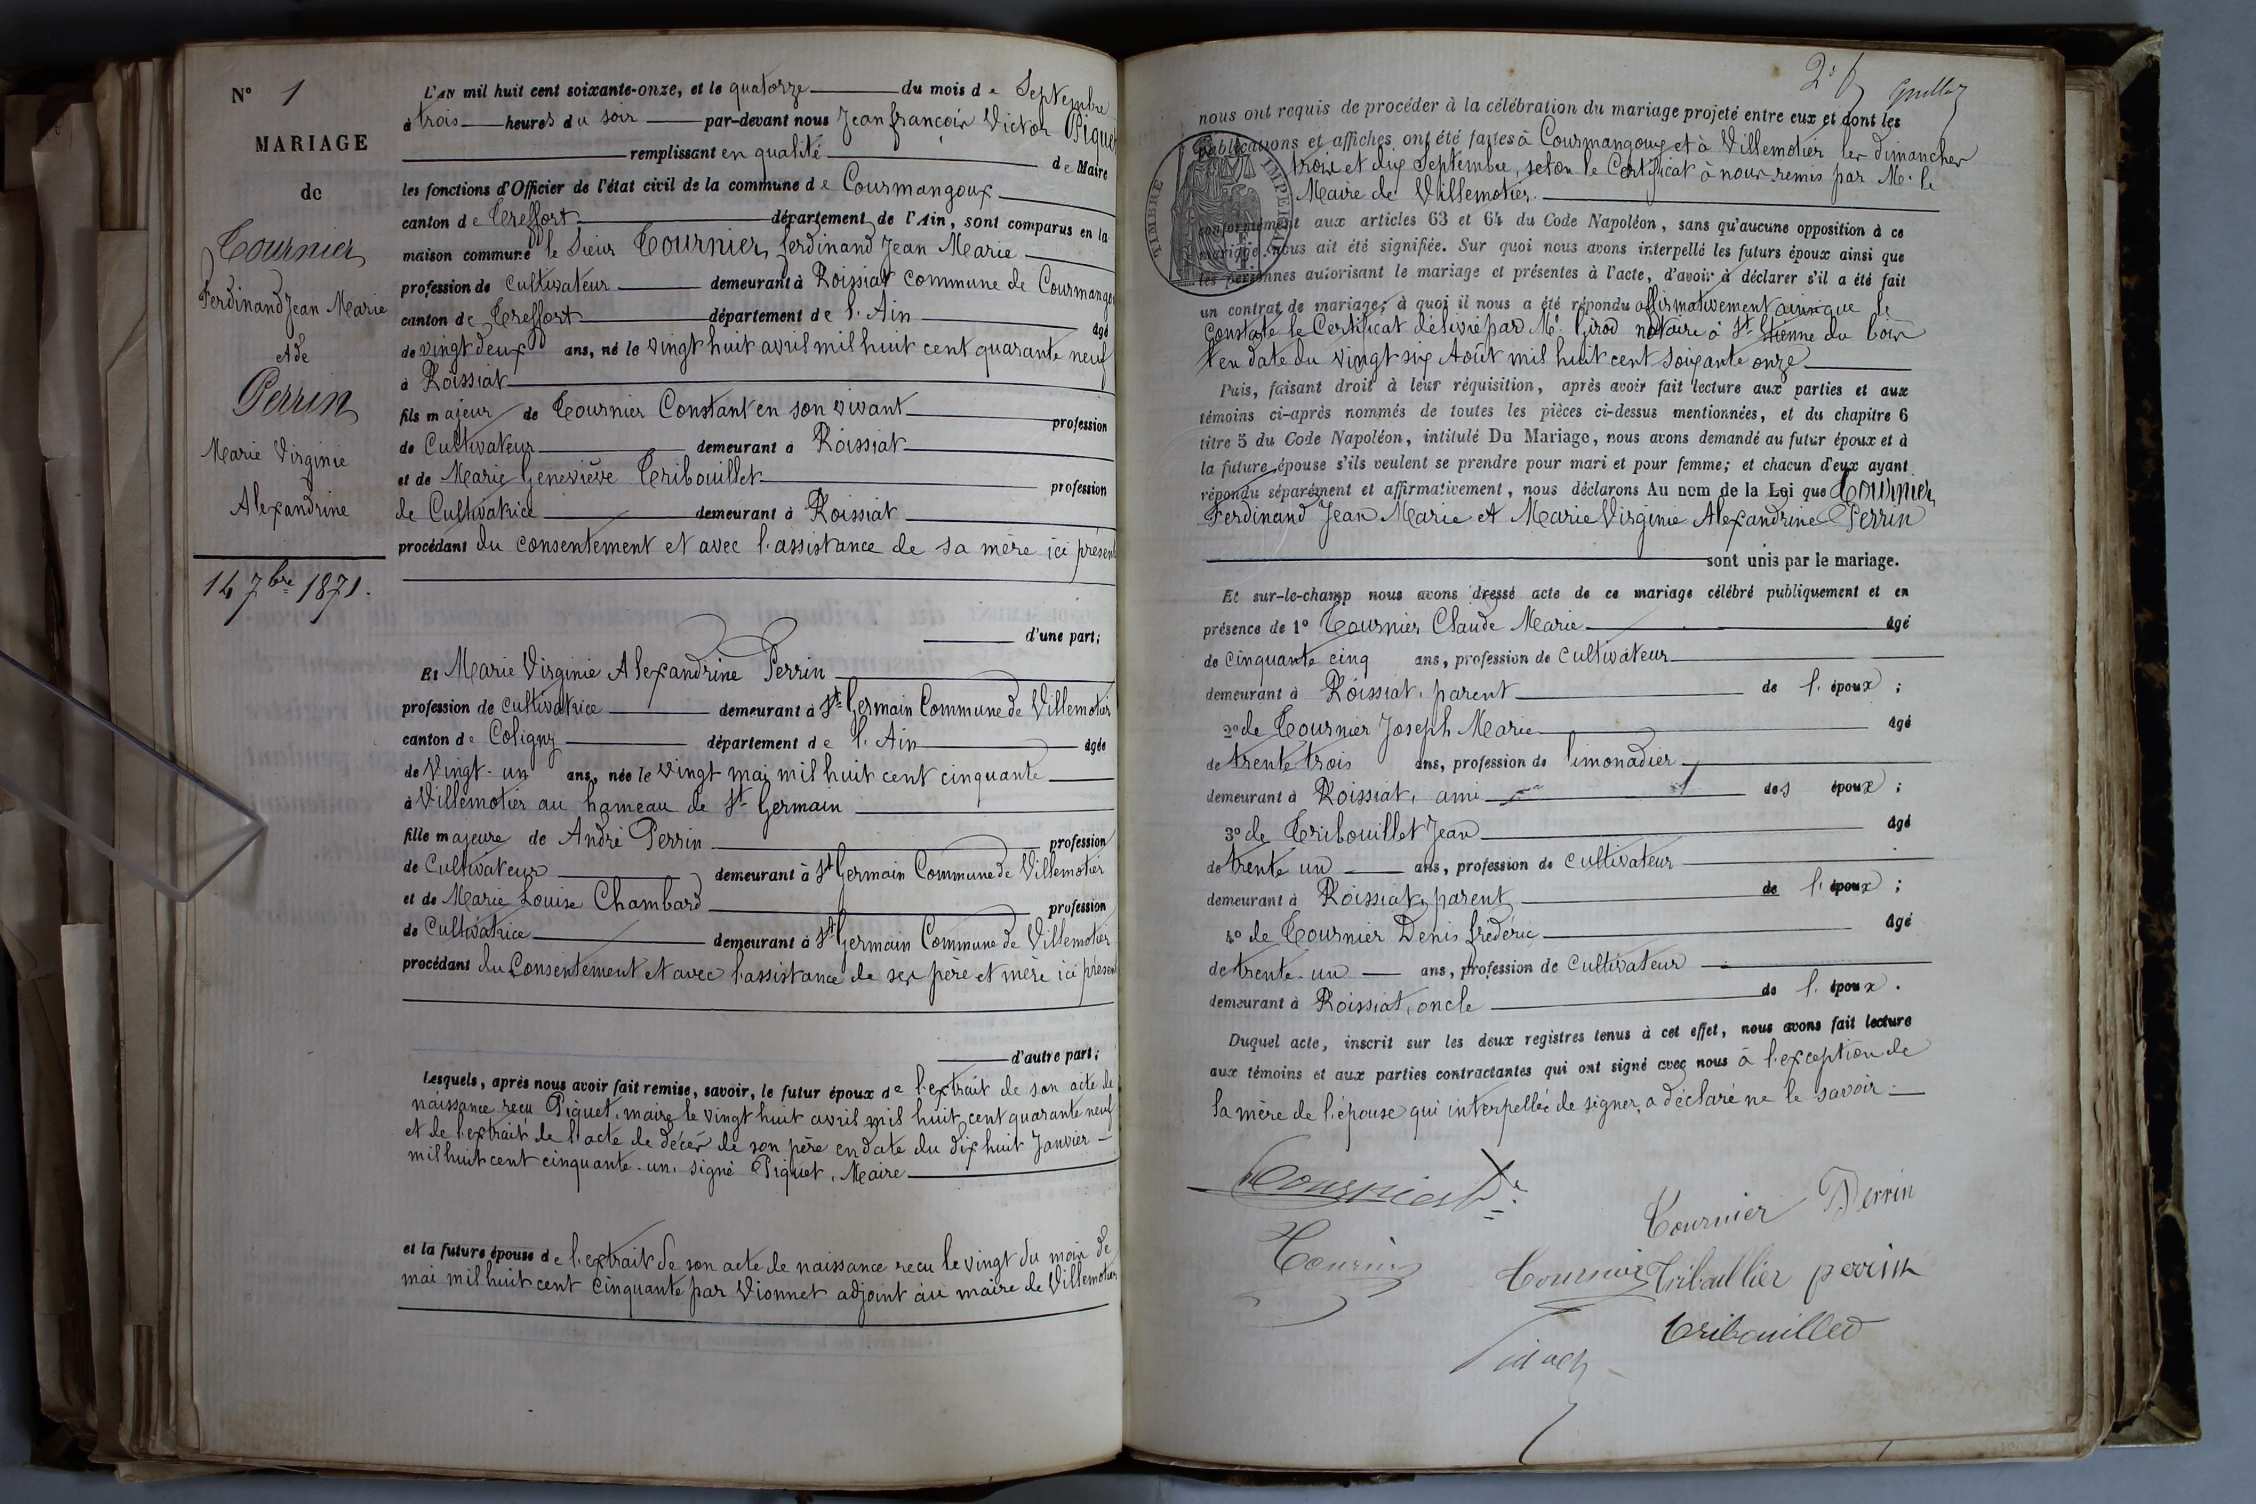 N° 1
MARIAGE
de
Tournier
Ferdinand Jean Marie
et de
Perrin
Marie Virginie
Alexandrine
14 7bre 1871.
L'AN mil huit cent soixante-onze, et le quatorze du mois de Septembre
à trois heures du soir par-devant nous Jean françois Victor Piquet
remplissant en qualité de Maire
les fonctions d'Officier de l'état civil de la commune de Courmangoux
canton de Treffort département de l'Ain, sont comparus en la
maison commune le Sieur Tournier, ferdinand Jean Marie
profession de cultivateur demeurant à Roissiat commune de Courmangoux
canton de Treffort département de l'Ain âgé
de vingt deux ans, né le vingt huit avril mil huit cent quarante neuf
à Roissiat
fils majeur de Tournier Constant en son vivant profession
de Cultivateur demeurant à Roissiat
et de Marie Geneviève Tribouillet profession
de Cultivatrice demeurant à Roissiat
procédant du consentement et avec l'assistance de sa mère ici présente
d'une part;
Et Marie Virginie Alexandrine Perrin
profession de cultivatrice demeurant à St Germain Commune de Villemotier
canton de Coligny département de l'Ain âgée
de Vingt-un ans, née le vingt mai mil huit cent cinquante
à Villemotier au hameau de St Germain
fille majeure de André Perrin profession
de Cultivateur demeurant à St Germain Commune de Villemotier
et de Marie Louise Chambard profession
de Cultivatrice demeurant à St Germain Commune de Villemotier
procédant du Consentement et avec l'assistance de ses père et mère ici présents
d'autre part;
Lesquels, après nous avoir fait remise, savoir, le futur époux de l'extrait de son acte de
naissance reçu Piquet, maire le vingt huit avril mil huit cent quarante neuf
et de l'extrait de l'acte de décès de son père en date du dix huit Janvier
mil huit cent cinquante-un, signé Piquet, Maire
et la future épouse de l'extrait de son acte de naissance reçu le vingt du mois de
mai mil huit cent cinquante par Vionnet adjoint au maire de Villemotier
nous ont requis de procéder à la célébration du mariage projeté entre eux et dont les
publications et affiches ont été faites à Courmangoux et à Villemotier les dimanches
trois et dix Septembre, selon le Certificat à nous remis par Mr. le
Maire de Villemotier.
TIMBRE IMPERIAL
conformément aux articles 63 et 64 du Code Napoléon, sans qu'aucune opposition à ce
mariage nous ait été signifiée. Sur quoi nous avons interpellé les futurs époux ainsi que
les personnes autorisant le mariage et présentes à l'acte, d'avoir à déclarer s'il a été fait
un contrat de mariage; à quoi il nous a été répondu affirmativement ainsi que le
Constate le Certificat délivré par Me. Girod notaire à St Etienne du bois
en date du vingt six Août mil huit cent soixante onze
Puis, faisant droit à leur réquisition, après avoir fait lecture aux parties et aux
témoins ci-après nommés de toutes les pièces ci-dessus mentionnées, et du chapitre 6
titre 5 du Code Napoléon, intitulé Du Mariage, nous avons demandé au futur époux et à
la future épouse s'ils veulent se prendre pour mari et pour femme; et chacun d'eux ayant
répondu séparément et affirmativement, nous déclarons Au nom de la Loi que Tournier
Ferdinand Jean Marie et Marie Virginie Alexandrine Perrin
sont unis par le mariage.
Et sur-le-champ nous avons dressé acte de ce mariage célébré publiquement et en
présence de 1° Tournier Claude Marie âgé
de cinquante cinq ans, profession de cultivateur
demeurant à Roissiat, parent de l'époux;
2° de Tournier Joseph Marie âgé
de trente trois ans, profession de limonadier
demeurant à Roissiat, ami des époux;
3° de Tribouillet Jean âgé
de trente un ans, profession de cultivateur
demeurant à Roissiat, parent de l'époux;
4° de Tournier Denis frédéric âgé
de trente-un ans, profession de cultivateur
demeurant à Roissiat, oncle de l'époux.
Duquel acte, inscrit sur les deux registres tenus à cet effet, nous avons fait lecture
aux témoins et aux parties contractantes qui ont signé avec nous à l'exception de
la mère de l'épouse qui interpellée de signer, a déclaré ne le savoir
Tournier
Tournier Perrin
Tournier Tribouillier perrin
Tribouillet